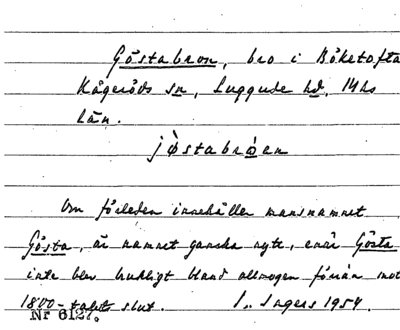 Göstabron, bro i Böketofta
Kågeröds sn, Luggude hd, Mhs
län.
jøstabrøen
Om förleden innehåller mansnamnet
Gösta, är namnet ganska nytt, enär Gösta
inte blev brukligt bland allmogen förrän mot
1800-talets slut. I. Ingers 1954.
Nr 6127.